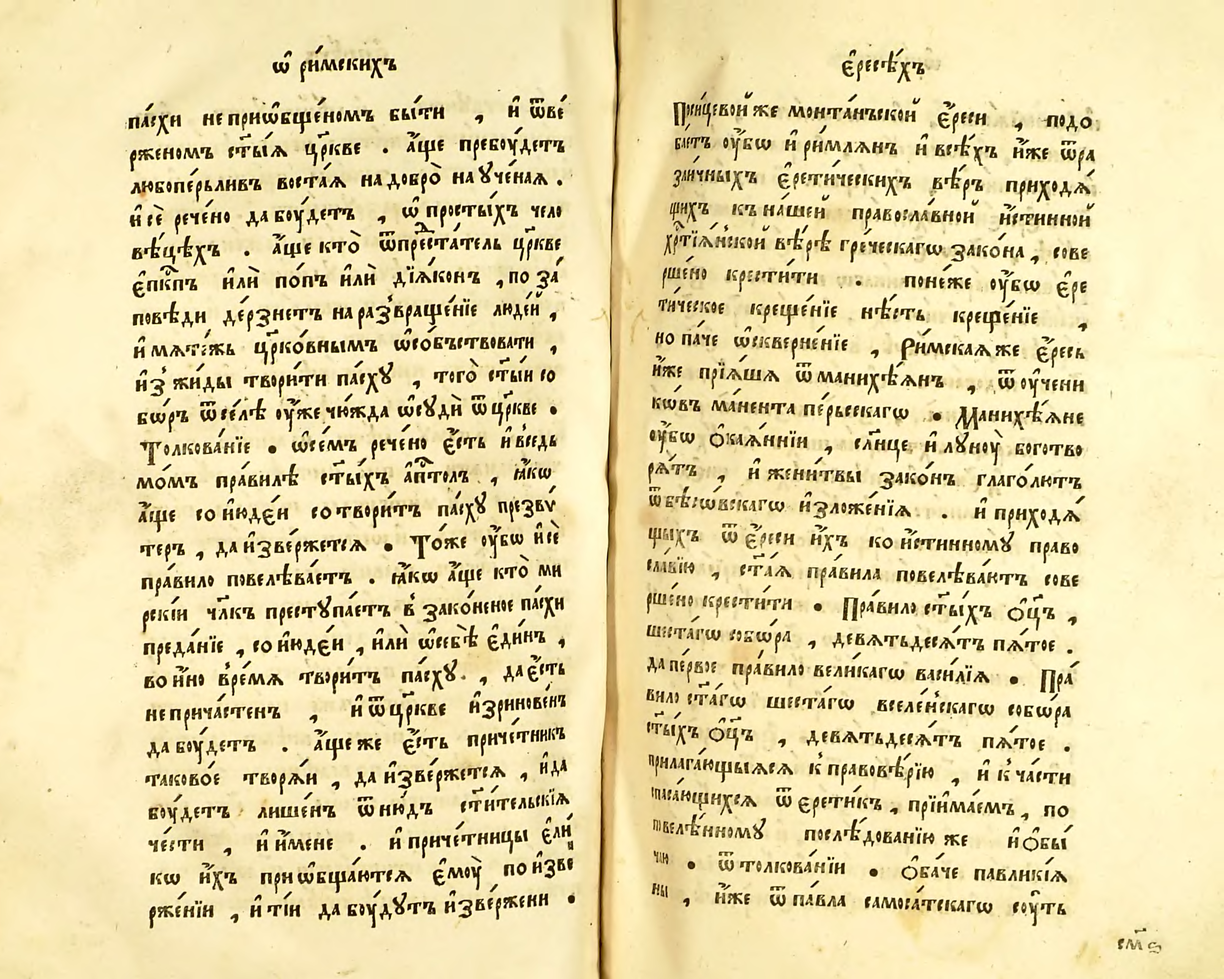 ѿ ри́мскихъ
па́схи непрїѡбще́номъ бы́ти , и҆ ѿве́
рженомъ ст҃ы́ѧ цр҃кве . а҆́ще пребоу́детъ
любопе́рьливъ воста́ѧ надобро̀ наꙋче́наѧ .
и҆сѐ рече́но дабоу́детъ , ѡ҆просты́хъ чело
вѣ́цѣхъ . а҆́ще кто̀ ѿпреста́тель цр҃кве
є҆пⷭ҇кпъ и҆лѝ по́пъ и҆лѝ дїѧ́конъ , поза́
повѣди де́рзнетъ наразвраще́нїе люде́й ,
и҆мѧте́жь цр҃ко́внымъ ѡ҆со́бъствовати ,
и҆з̾ жиды твори́ти па́схꙋ , того̀ ст҃ы́и со
бѡ́ръ ѿсе́лѣ оу҆́же чю́жда ѡ҆сꙋдѝ ѿцр҃кве .
Толкова́нїе . ѡ҆се́мъ рече́но є҆́сть и҆вседь
мо́мъ пра́вилѣ ст҃ы́хъ а҆пⷭ҇толъ , ꙗ҆́кѡ
а҆́ще сої҆юде́и сотвори́тъ па́схꙋ презвѵ́
теръ , даи҆зве́ржетсѧ . То́же оу҆́бѡ и҆сѐ
пра́вило повелѣва́етъ . ꙗ҆́кѡ а҆́ще кто̀ ми
рскі́и чл҃къ престꙋпа́етъ в̾ зако́неное па́схи
преда́нїе , сої҆юде́и , и҆лѝ ѡ҆себѣ̀ є҆ди́нъ ,
вои҆́но вре́мѧ твори́тъ па́схꙋ . , дає҆́сть
неприча́стенъ , и҆ѿцр҃кве и҆зринове́нъ
дабоу́детъ . а҆́щеже є҆́сть приче́тникъ
таково́е творѧ́и , даи҆зве́ржетсѧ , и҆да
боу́детъ лише́нъ ѿню́дъ ст҃и́тельскїѧ
че́сти , и҆и҆́мене . и҆приче́тницы є҆ли́
кѡ и҆́хъ приѡбща́ютсѧ є҆моу̀ поизве
рже́нїи , и҆ті́и дабоу́дꙋтъ и҆зве́ржени .
є҆́ресѣ́хъ
Пони́цевой же монта́нъской є҆́реси , подо
ба́етъ оу҆́бѡ и҆ри́млѧнъ и҆все́хъ и҆́же ѿра
зли́чныхъ є҆рети́ческихъ вѣ́ръ приходѧ́
щихъ кна́шей правосла́вной и҆́стинной
хрⷭ҇тїѧ́нской вѣ́рѣ гре́ческагѡ зако́на , сове
рше́но крести́ти . поне́же оу҆́бѡ є҆ре
ти́ческое креще́нїе нѣ́сть креще́нїе ,
но па́че ѡ҆скверне́нїе , Ри́мскаѧже є҆́ресь
и҆́же прїѧ́шѧ ѿманихѣ́ѧнъ , ѿоу҆чени
кѡ́въ ма́нента пе́рьсскагѡ . Манихѣ́ѧне
оу҆́бѡ ѻ҆каѧ́ннїи , сл҃нце и҆лꙋноу̀ боготво
рѧ́тъ , и҆жени́твы зако́нъ глаго́лютъ
ѿбѣсо́вскагѡ и҆зложе́нїѧ . и҆приходѧ́
щыхъ ѿє҆́реси и҆́хъ кои҆́стинномꙋ право
сла́вїю , ст҃а́ѧ пра́вила повелѣва́ютъ сове
рше́но крести́ти . Пра́вило ст҃ы́хъ ѻ҆ц҃ъ ,
шеста́гѡ собѡ́ра , девѧтьдесѧ́тъ пѧ́тое .
дапе́рвое пра́вило вели́кагѡ васи́лїѧ . Пра́
вило ст҃а́гѡ шеста́гѡ вселе́нскагѡ собѡ́ра
ст҃ы́хъ ѻ҆ц҃ъ , девѧтьдесѧ́тъ пѧ́тое .
прилага́ющыѧсѧ к̾правовѣ́рїю , и҆ к̾ча́сти
спаса́ющихсѧ ѿє҆рети́къ , прїима́емъ , по
повелѣ́нномꙋ послѣ́дованїю же и҆ѻ҆бы́
чаю . ѿтолкова́нїи . ѻ҆ба́че павликїѧ
ны , и҆́же ѿпа́вла самоса́тскагѡ соу́ть
см҃ѕ